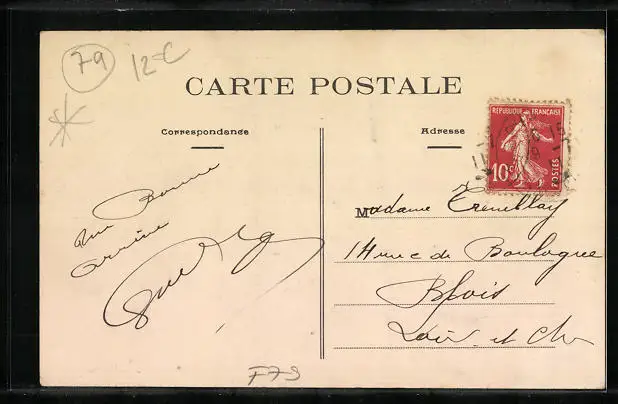 79
12-C
CARTE POSTALE
Correspondance
Adresse
REPUBLIQUE FRANÇAISE
10c
POSTES
Bonne
Madame Tremblay
14 rue de Boulogne
Blois
Loir et Cher
F79